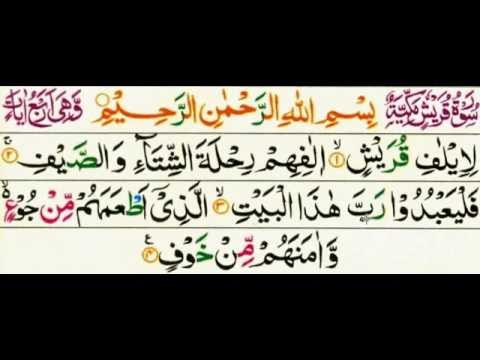 سُوْرَةُ قُرَيْشٍ مَكِّيَّةٌ بِسْمِ اللهِ الرَّحْمٰنِ الرَّحِيْمِ وَهِيَ اَرْبَعُ اٰيَاتٍ
لِاِيْلٰفِ قُرَيْشٍ ۙ‏﴿۱﴾ اٖلٰفِهِمْ رِحْلَةَ الشِّتَآءِ وَالصَّيْفِ ۚ‏﴿۲﴾
فَلْيَعْبُدُوْا رَبَّ هٰذَا الْبَيْتِ ۙ‏﴿۳﴾ الَّذِىْٓ اَطْعَمَهُمْ مِّنْ جُوْعٍ ۙ
وَّاٰمَنَهُمْ مِّنْ خَوْفٍ ﴿۴﴾